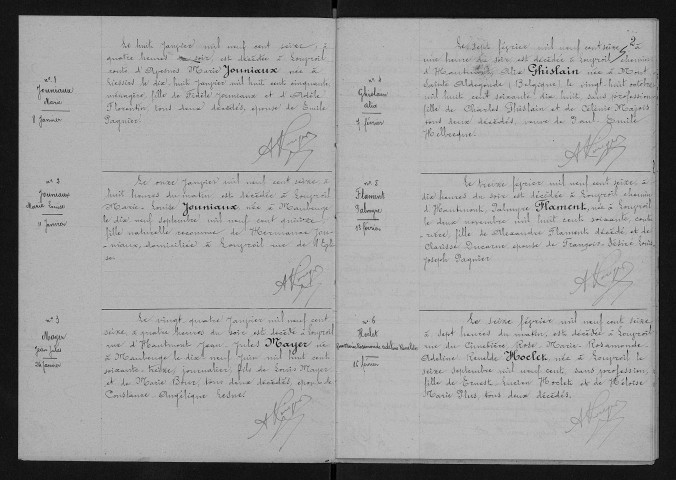 N° 1
Jouniaux
Marie
8 Janvier
Le huit Janvier mil neuf cent seize, à
quatre heures du soir, est décédée à Louvroil
route d'Avesnes Marie Jouniaux née à
le dix huit Janvier mil huit cent cinquante
ménagère, fille de Fidèle Jouniaux et d'Adèle
Florentin tous deux décédés, épouse de Emile
Pagnier.
N° 2
Jouniaux
Marie Louise
11 Janvier
Le onze Janvier mil neuf cent seize à
huit heures du matin, est décédée à Louvroil
Marie-Louise Jouniaux, née à Maubeuge
le dix neuf septembre mil neuf cent quinze
fille naturelle reconnue de Hermance Jou-
niaux, domiciliée à Louvroil rue de l'Egli
se.
N° 3
Mayer
Jean Jules
24 Janvier
Le vingt quatre Janvier mil neuf cent
seize, à quatre heures du soir est décédé à Louvroil
rue d'Hautmont Jean Jules Mayer né
à Maubeuge le dix neuf Juin mil huit cent
soixante-treize, journalier, fils de Louis Mayer
et de Marie tous deux décédés, époux de
Constance Angélique
2
N° 4
Ghislain
Alix
7 février
Le sept février mil neuf cent seize à
une heure du soir est décédée à Louvroil chemin
d'Hautmont, Alix Ghislain née à Mont
Sainte Aldegonde (Belgique) le vingt huit octobre
mil huit cent soixante dix huit sans profession
fille de Charles Ghislain et de Célénie
tous deux décédés, veuve de Paul Emile
N° 5
Flament
Palmyre
13 février
Le treize février mil neuf cent seize, à
dix heures du soir est décédée à Louvroil chemin
d'Hautmont Palmyre Flament, née à Louvroil
le deux novembre mil huit cent soixante, coutu
rière, fille de Alexandre Flament décédé, et de
Clarisse Ducarne épouse de François Désiré Louis
Joseph Pagnier
N° 6
Hoclet
Rose Marie Rosamonde Adeline Renelde
16 février
Le seize février mil neuf cent seize,
à sept heures du matin, est décédée à Louvroil
rue du Cimetière Rose-Marie-Rosamonde-
Adeline Renelde Hoclet, née à Louvroil le
seize septembre mil neuf cent, sans profession,
fille de Ernest Lucien Hoclet et de Héloïse
Marie Plus, tous deux décédés.